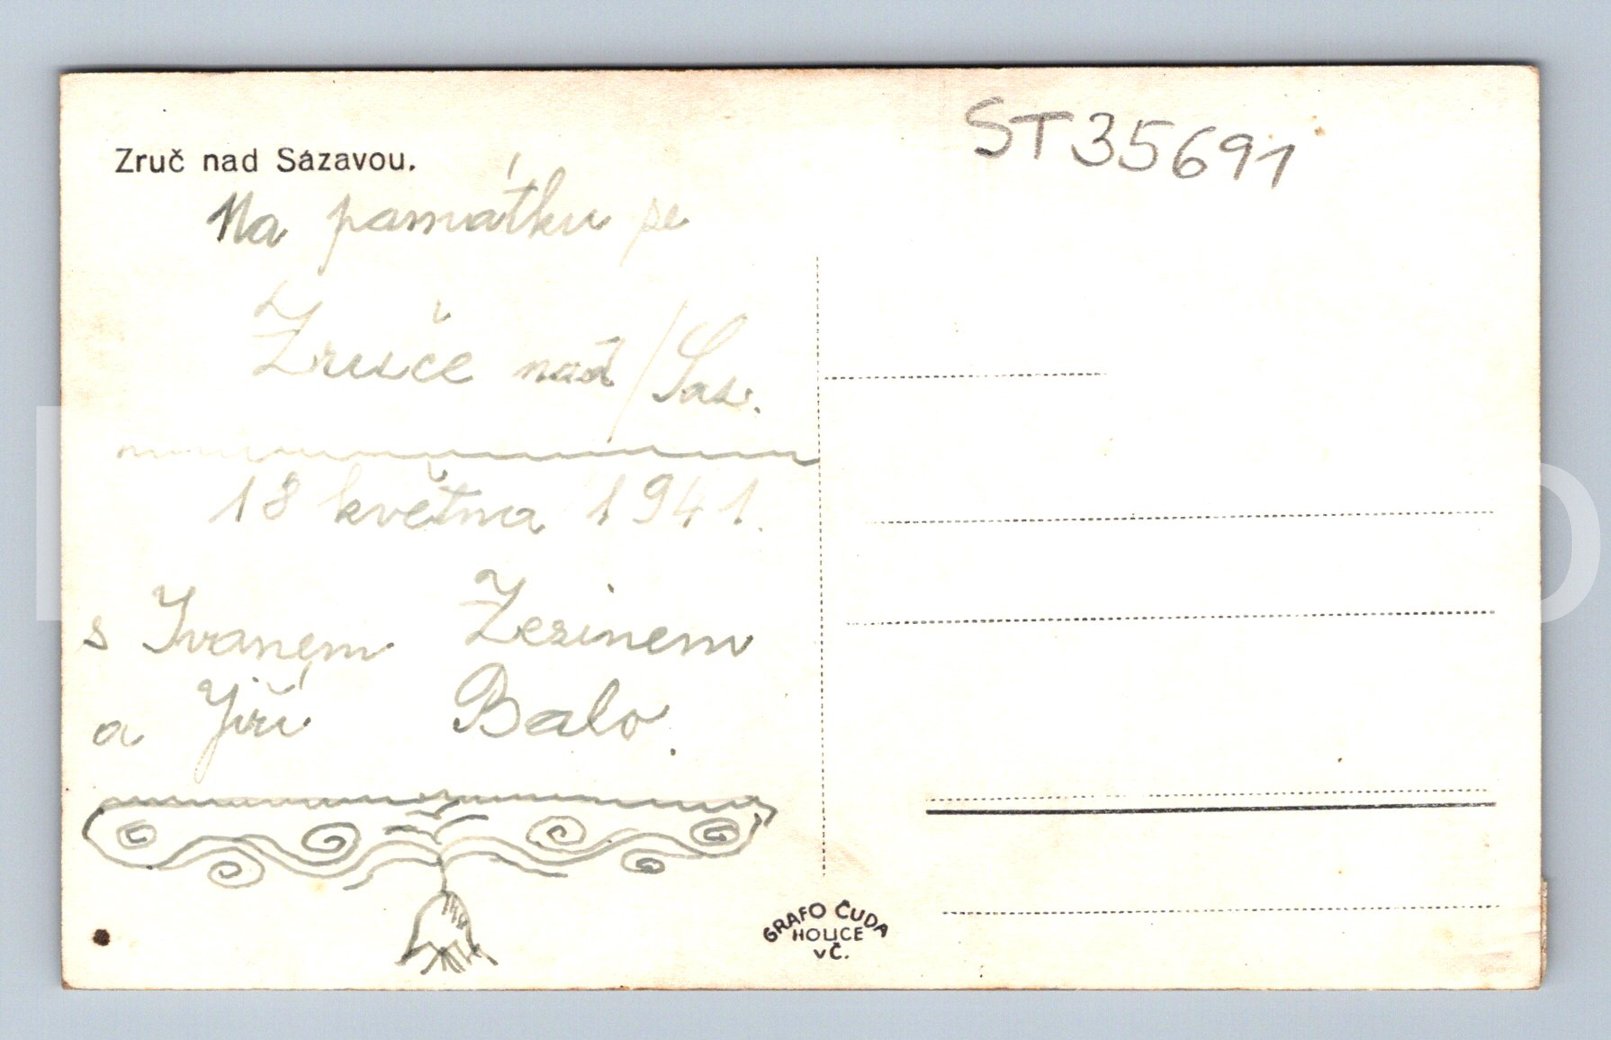 Zruč nad Sázavou.
ST35691
Na památku ze
Zruče nad/Sáz.
18 května 1941.
s Ivanem Zezinem
a Jiří Balo.
GRAFO ČUDA
HOLICE
v Č.